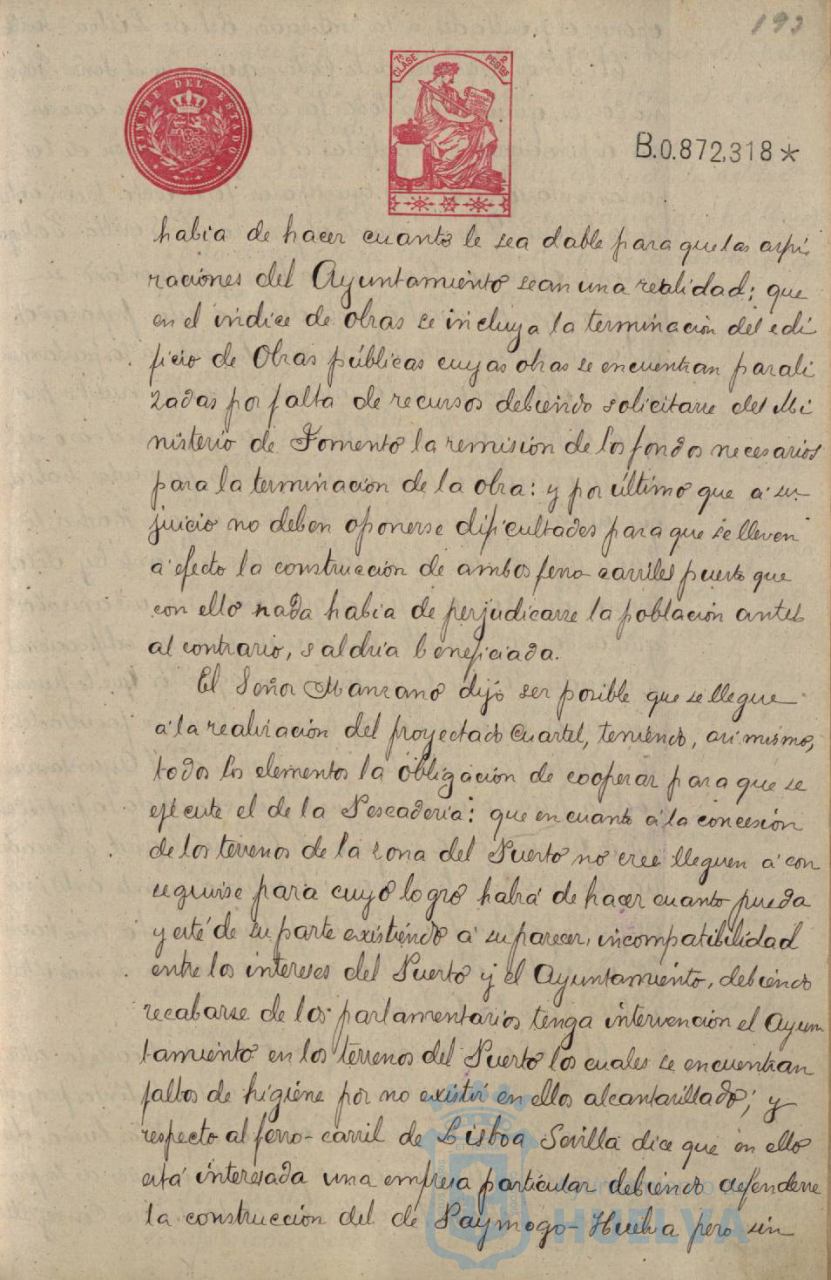 193
TIMBRE DEL ESTADO
7ª CLASE 2 PESETAS
B.0.872,318*
habia de hacer cuanto le sea dable para que las aspi
raciones del Ayuntamiento sean una realidad; que
en el indice de obras se incluya la terminación del edi
ficio de Obras públicas cuyas obras se encuentran parali
zadas por falta de recursos debiendo solicitarse del Mi
nisterio de Fomento la remisión de los fondos necesarios
para la terminación de la obra: y por último que á su
juicio no deben oponerse dificultades para que se lleven
á efecto la construcción de ambos ferro carriles puesto que
con ello nada habia de perjudicarse la población antes
al contrario, saldria beneficiada.
El Señor Manzano dijo ser posible que se llegue
á la realización del proyectado Cuartel, teniendo, asi mismo,
todos los elementos la obligación de cooperar para que se
ejecute el de la Pescaderia: que en cuanto á la concesión
de los terrenos de la zona del Puerto no cree lleguen á con
seguirse para cuyo logro habrá de hacer cuanto pueda
y esté de su parte existiendo á su parecer, incompatibilidad
entre los intereses del Puerto y el Ayuntamiento, debiendo
recabarse de los parlamentarios tenga intervención el Ayun
tamiento en los terrenos del Puerto los cuales se encuentran
faltos de higiene por no existir en ellos alcantarillado; y
respecto al ferro-carril de Lisboa Sevilla dice que en ello
está interesada una empresa particular debiendo defenderse
la construcción del de Paymogo-Huelva pero sin
HUELVA